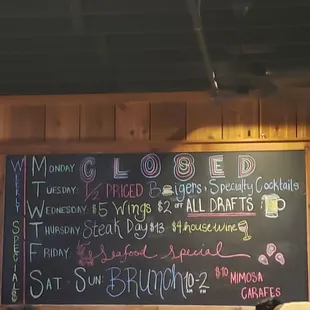 WEEKLY SPECIALS
MONDAY CLOSED
TUESDAY: 1/2 PRICED Burgers + Specialty Cocktails
WEDNESDAY $5 WINGS $2 off ALL DRAFTS
THURSDAY Steak DAY $13 $4 house wine
FRIDAY Seafood Special
SAT - SUN: BRUNCH 10-2 $10 MIMOSA
CARAFES